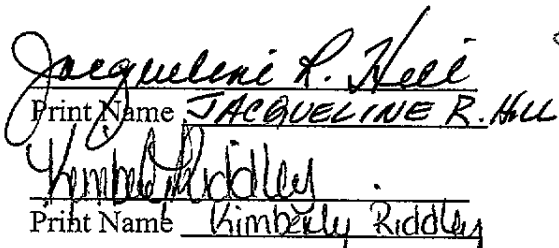 Jacqueline R. Hill
Print Name JACQUELINE R. HILL
Kimberly Riddley
Print Name Kimberly Riddley